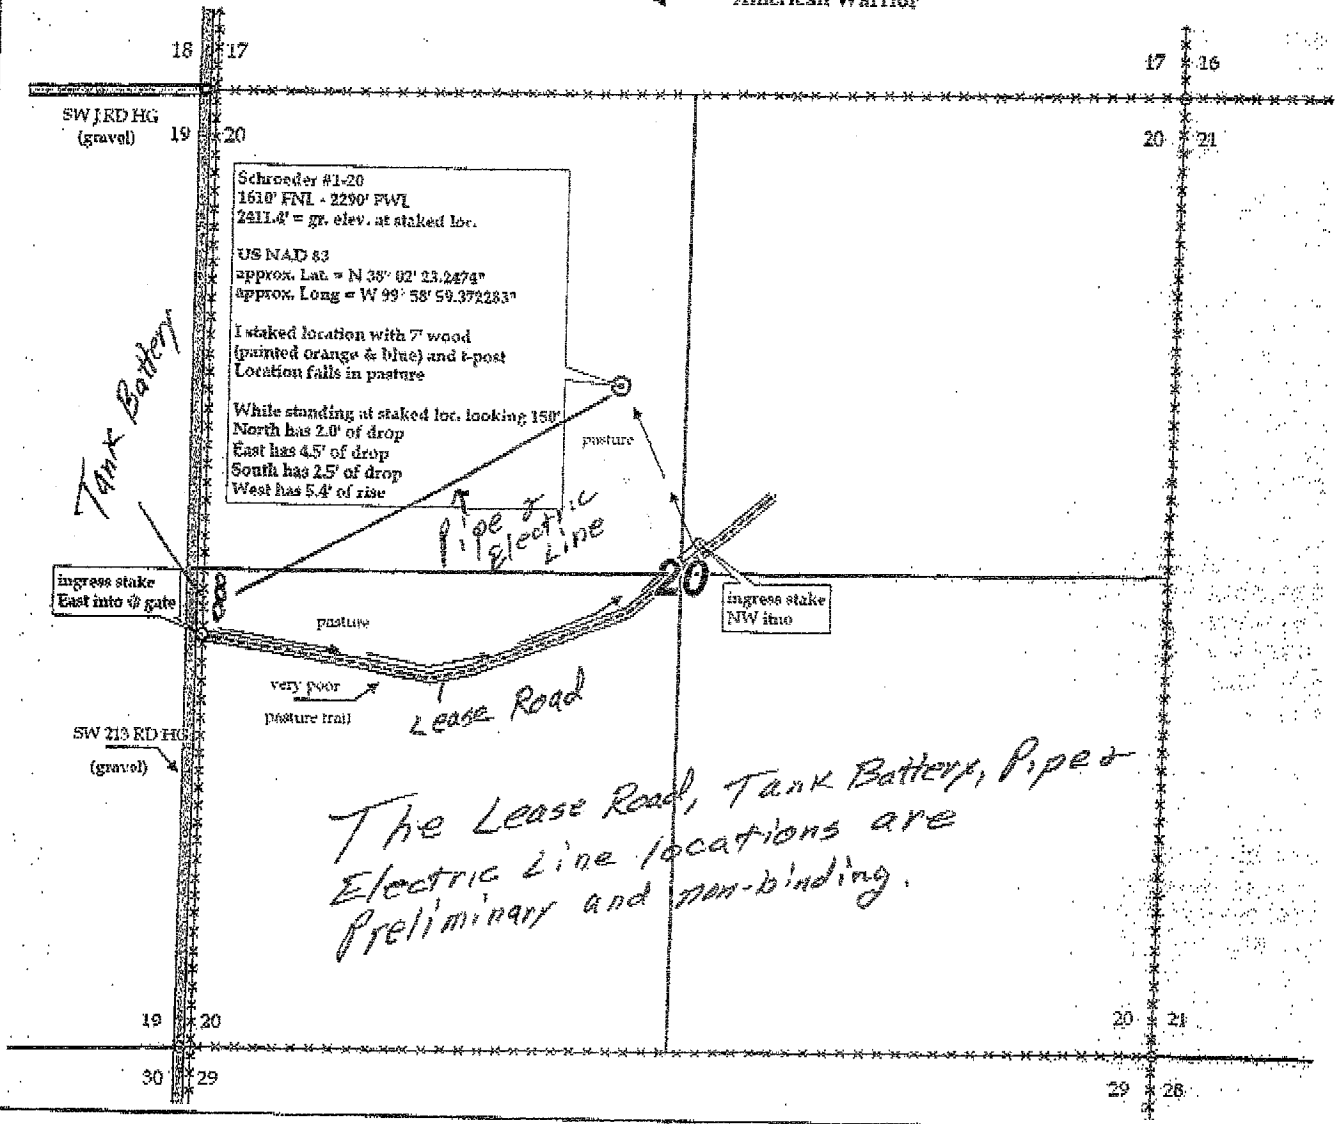 American Warrior
18 17
17 16
SW J RD HG
(gravel)
19 20
20 21
Schroeder #1-20
1610' FNL - 2290' FWL
2411.4' = gr. elev. at staked loc.
US NAD 83
approx. Lat. = N 38° 02' 23.2474"
approx. Long = W 99° 58' 59.372283"
I staked location with 7' wood
(painted orange & blue) and t-post
Location falls in pasture
While standing at staked loc. looking 150'
North has 2.0' of drop
East has 4.5' of drop
South has 2.5' of drop
West has 5.4' of rise
Tank Battery
pasture
Pipe &
Electric
Line
20
ingress stake
East into @ gate
ingress stake
NW into
pasture
very poor
pasture trail
Lease Road
SW 213 RD HG
(gravel)
The Lease Road, Tank Battery, Pipe &
Electric Line locations are
Preliminary and non-binding.
19 20
20 21
30 29
29 28